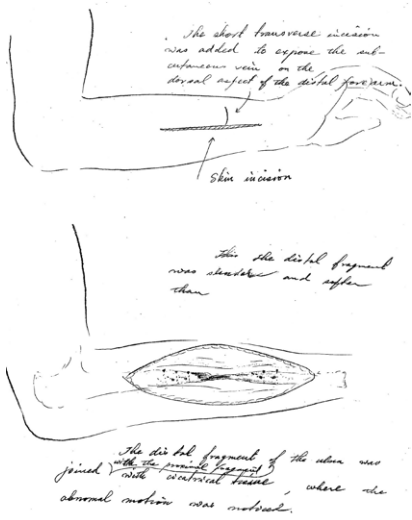 The short transverse incision
was added to expose the sub-
cutaneous vein on the
dorsal aspect of the distal forearm.
Skin incision
the distal fragment
was and softer
than
The distal fragment of the ulna was
joined with the proximal fragment
with cicatricial tissue, where the
abnormal motion was noticed.